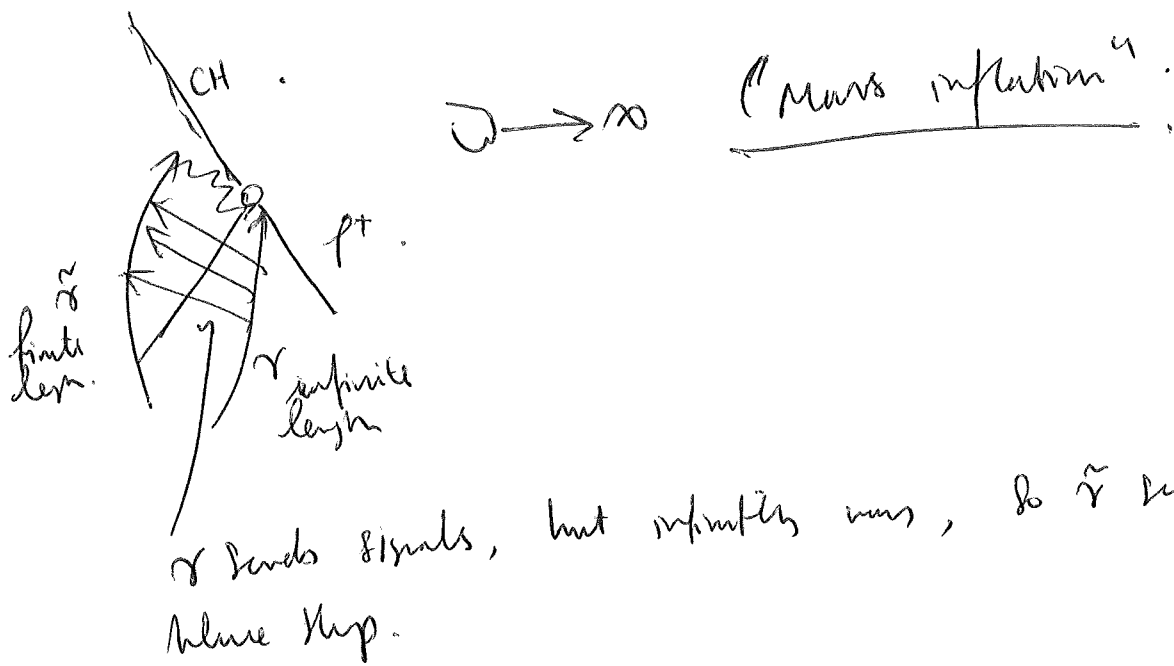 CH .
ϖ → ∞ ("Mass inflation" .
𝓘⁺ .
γ̃
finite
length.
γ infinite
length
γ sends signals, but infinitely many, so γ̃ se
blue shift.